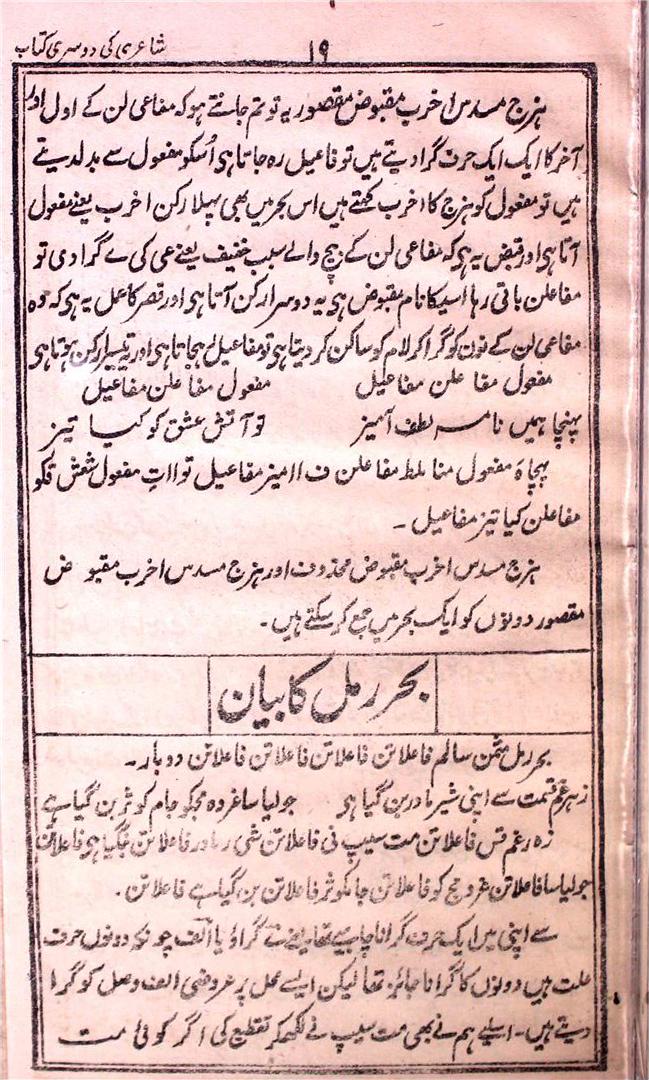 شاعری کی دوسری کتاب
۱۹
ہزج مسدس اخرب مقبوض مقصور یہ تو تم جانتے ہو کہ مفاعی لن کے اول اور
آخر کا ایک ایک حرف گرا دیتے ہیں تو فاعیل رہ جاتا ہی اُسکو مفعول سے بدلدیتے
ہیں تو مفعول کو ہزج کا اخرب کہتے ہیں اس بحر میں بھی پہلا رکن اخرب یعنے مفعول
آتا ہی اور قبض یہ ہی کہ مفاعی لن کے بیچ والے سبب خفیف یعنے عی کی ے گرا دی تو
مفاعلن باقی رہا اسیکا نام مقبوض ہی یہ دوسرا رکن آتا ہی اور قصر کا عمل یہ ہی کہ وہ
مفاعی لن کے نون کو گرا کر لام کو ساکن کر دیتا ہی تو مفاعیل رہجاتا ہی اور یہ تیسرا رکن ہوتا ہی
مفعول مفا علن مفاعیل مفعول مفا علن مفاعیل
پہنچا ہمیں نامہ لطف آمیز تو آتش عشق کو کیا تیز
پہچاہَ مفعول منا ملط مفاعلن ف اامیز مفاعیل تو ااتِ مفعول شعش قکو
مفاعلن کیا تیز مفاعیل ۔
ہزج مسدس اخرب مقبوض محذوف اور ہزج مسدس اخرب مقبو ض
مقصور دونوں کو ایک بحر میں جمع کر سکتے ہیں۔
بحر رمل کا بیان
بحر رمل مثمن سالم فاعلاتن فاعلاتن فاعلاتن فاعلاتن دو بار۔
زہر غم قسمت سے اپنی شیر مادر بن گیا ہی جو لیا ساغر وہ مجکو جام کوثر بن گیا ہے
زہ رغم قس فاعلاتن مت سیپ نی فاعلاتن شی رمادر فاعلاتن بنگیا ہو فاعلاتن
جو لیا سا فاعلاتن غر و مج کو فاعلاتن جامکوثر فاعلاتن بن گیا ہے فاعلاتن۔
سے اپنی میں ایک حرف گرانا چاہیے تھا یعنے ے گراؤ یا الف چونکہ دونوں حرف
علت ہیں دونوں کا گرانا جائز تھا لیکن ایسے محل پر عروضی الف وصل کو گرا
دیتے ہیں۔ اسلیے ہم نے بھی مت سیپ نے لکھکر تقطیع کی اگر کوئی مت